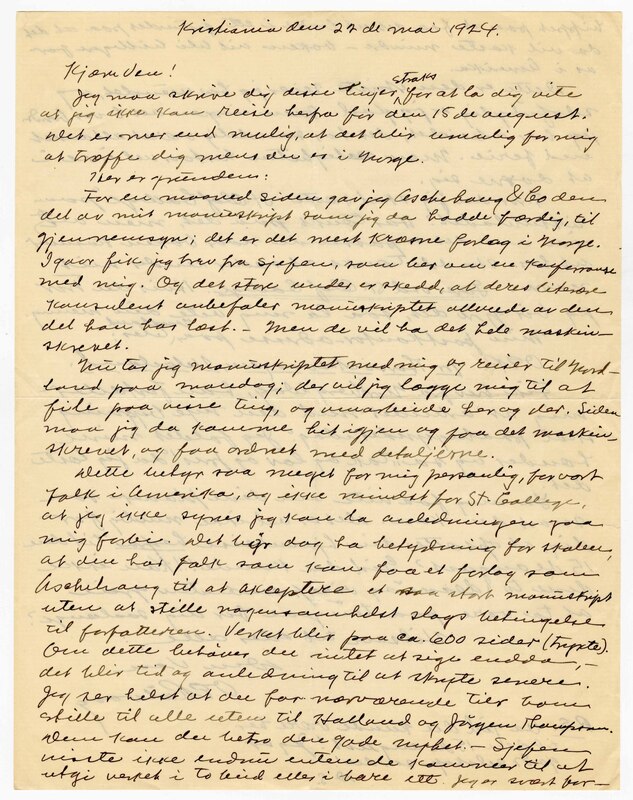 Kristiania den 22 de mai 1924.
Kjære Ven!
Jeg maa skrive dig disse linjer straks for at la dig vite
at jeg ikke kan reise herfra før den 15 de august.
Det er mer end mulig, at det blir umulig for mig
at træffe dig mens du er i Norge.
Her er grunden:
For en maaned siden gav jeg Aschehoug & Co den
del av mit manuskript som jeg da hadde færdig, til
gjennemsyn; det er det mest kræsne forlag i Norge.
Igaar fik jeg brev fra sjefen, som ber om en konferanse
med mig. Og det store under er skedd, at deres literære
konsulent anbefaler manuskriptet allerede av den
del han har læst. – Men de vil ha det hele maskin-
skrevet.
Nu tar jeg manuskriptet med mig og reiser til Nord-
land paa mandag; der vil jeg lægge mig til at
file paa visse ting, og omarbeide her og der. Siden
maa jeg da komme hit igjen og faa det maskin-
skrevet, og faa ordnet med detaljerne.
Dette betyr saa meget for mig personlig, for vort
folk i Amerika, og ikke mindst for St. College,
at jeg ikke synes jeg kan la anledningen gaa
mig forbi. Det bør dog ha betydning for skolen,
at den har folk som kan faa et forlag som
Aschehoug til at akceptere et saa stort manuskript
uten at stille nogensomhelst slags betingelse
til forfatteren. Verket blir paa ca. 600 sider (trykte).
Om dette behøver du intet at sige endda, –
det blir tid og anledning til at skryte senere.
Jeg ser helst at du for nærværende tier bom
stille til alle uten til Holland og Jörgen Thompson.
Dem kan du betro den gode nyhet. – Sjefen
visste ikke endnu enten de kommer til at
utgi verket i to bind eller i bare ett. Jeg er svært for-